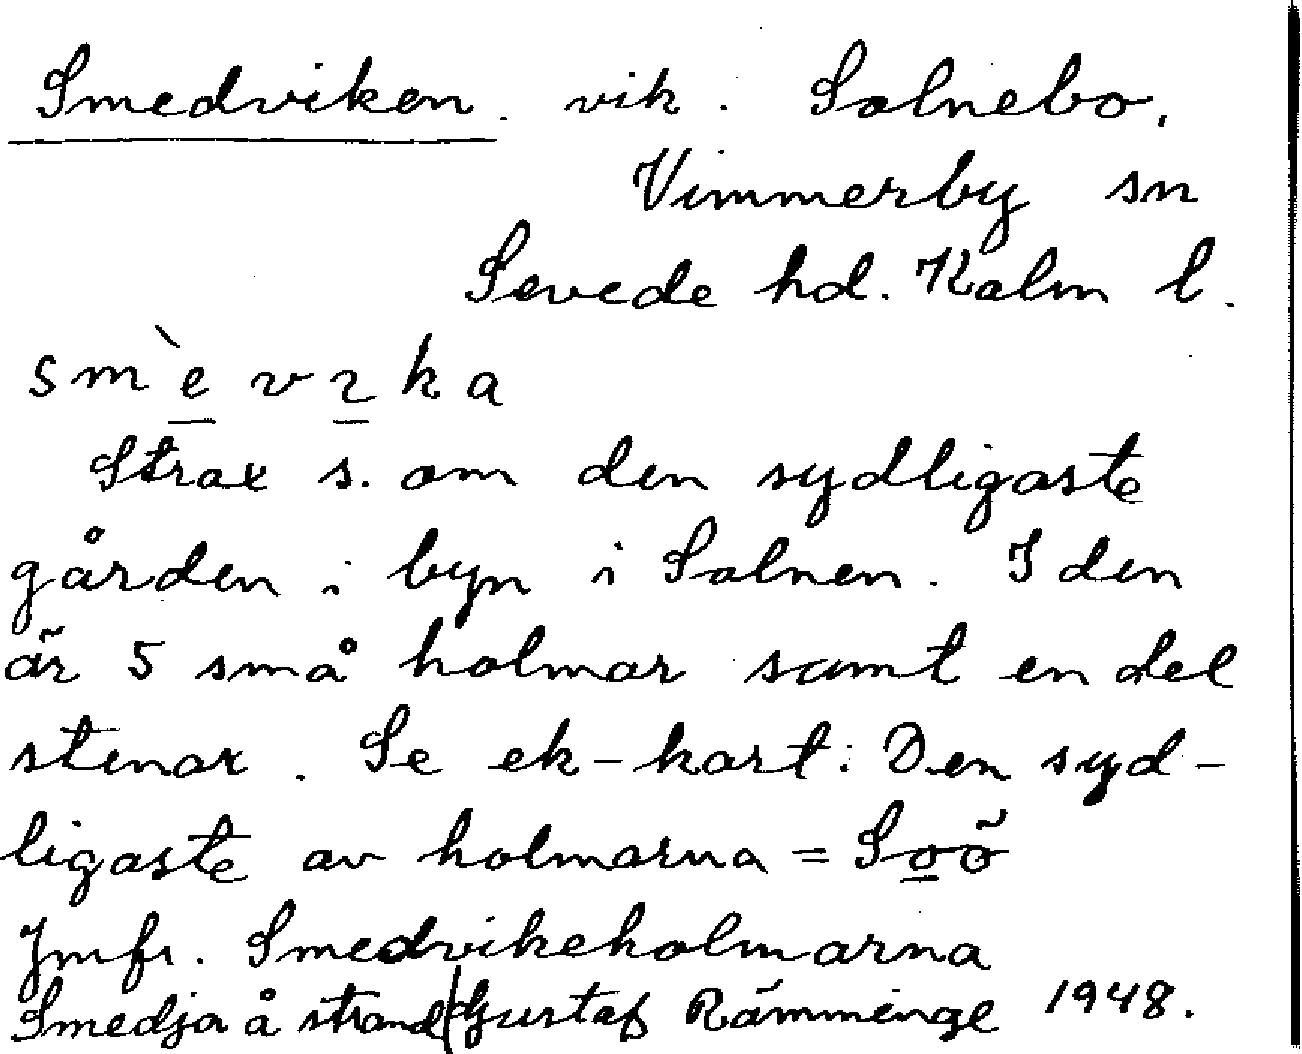 Smedviken. vik. Solnebo,
Vimmerby sn
Sevede hd. Kalm l.
sm`e vɿka
Strax s. om den sydligaste
gården i byn i Solnen. I den
är 5 små holmar samt en del
stenar. Se ek-kart: Den syd-
ligaste av holmarna = Soö
Jmfr. Smedvikeholmarna
Smedja å strand Gustaf Rämminge 1948.